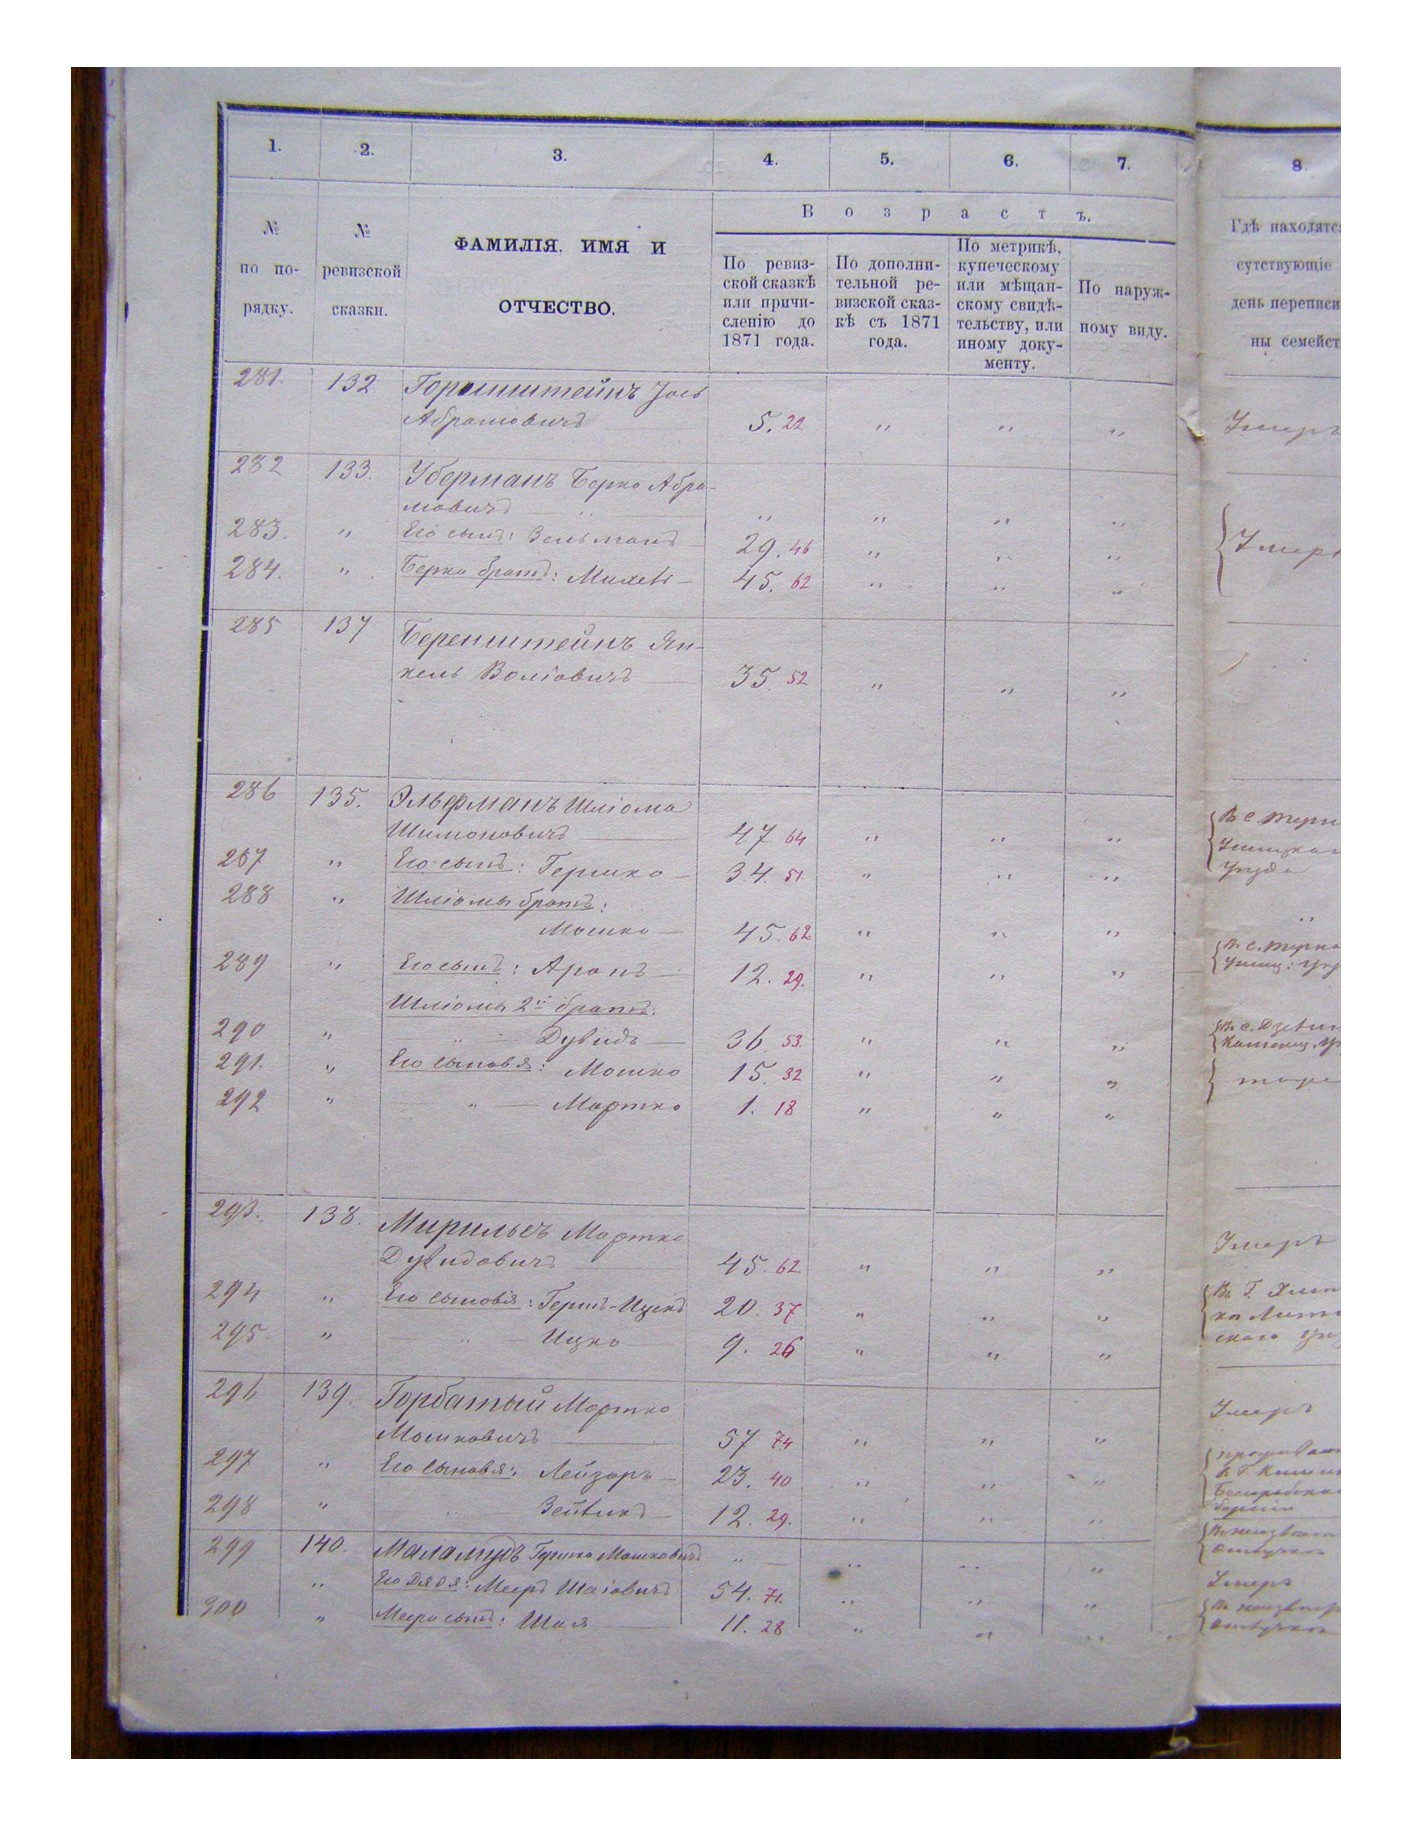 1. 2. 3. 4. 5. 6. 7. 8.
№ по по- рядку.
№ ревизской сказки.
ФАМИЛІЯ, ИМЯ И
ОТЧЕСТВО.
Возрастъ.
По ревиз-
ской сказкѣ
или причи-
сленію до
1871 года.
По дополни-
тельной ре-
визской сказ-
кѣ съ 1871
года.
По метрикѣ,
купеческому
или мѣщан-
скому свидѣ-
тельству, или
иному доку-
менту.
По наруж-
ному виду.
Гдѣ находятся
сутствующіе
день переписи
ны семейст
281. 132 Горенштейнъ Іось
Абрамовичъ 5. 22 " " " Умеръ
282 133. Уберманъ Берко Абра-
мовичъ " " " "
283. " Его сынъ: Зельманъ 29. 46 " " " Умер
284. " Берка братъ: Михель 45. 62 " " "
285 137 Беренштейнъ Ян-
кель Волiовичъ 35 52 " " "
286 135. Эльфманъ Шліома
Шимоновичъ 47 64 " " " Въ с.
287 " Его сынъ: Гершко 34. 51. " " " уѣзда
288 " Шліомы братъ:
Мошко 45. 62 " " "
289 " Его сынъ: Аронъ 12. 29. " " " Въ с.
Шліомы 2й братъ:
290 " " Дувидъ 36 53. " " " Въ с.
291. " Его сыновья: Мошко 15. 32 " " "
292 " " Мортко 1. 18 " " "
293. 138. Мирильесъ Мортко
Дувидовичъ 45. 62 " " " Умеръ
294 " Его сыновья: Гершъ-Ицекъ 20. 37 " " " Въ Г.
295. " " Ицко 9. 26 " " " ского
296 139. Горбатый Мортко
Мошковичъ 57 74 " " " Умеръ
297 " Его сыновья: Лейзоръ 23. 40 " " "
въ Г.
298 " " Зейликъ 12. 29. " " "
299 140. Маламудъ Гершко Мошковичъ " " " " отлучкѣ
" Его дядя: Мееръ Шаіовичъ 54. 71. " " " Умеръ
300 " Меера сынъ: Шая 11. 28 " " " отлучкѣ